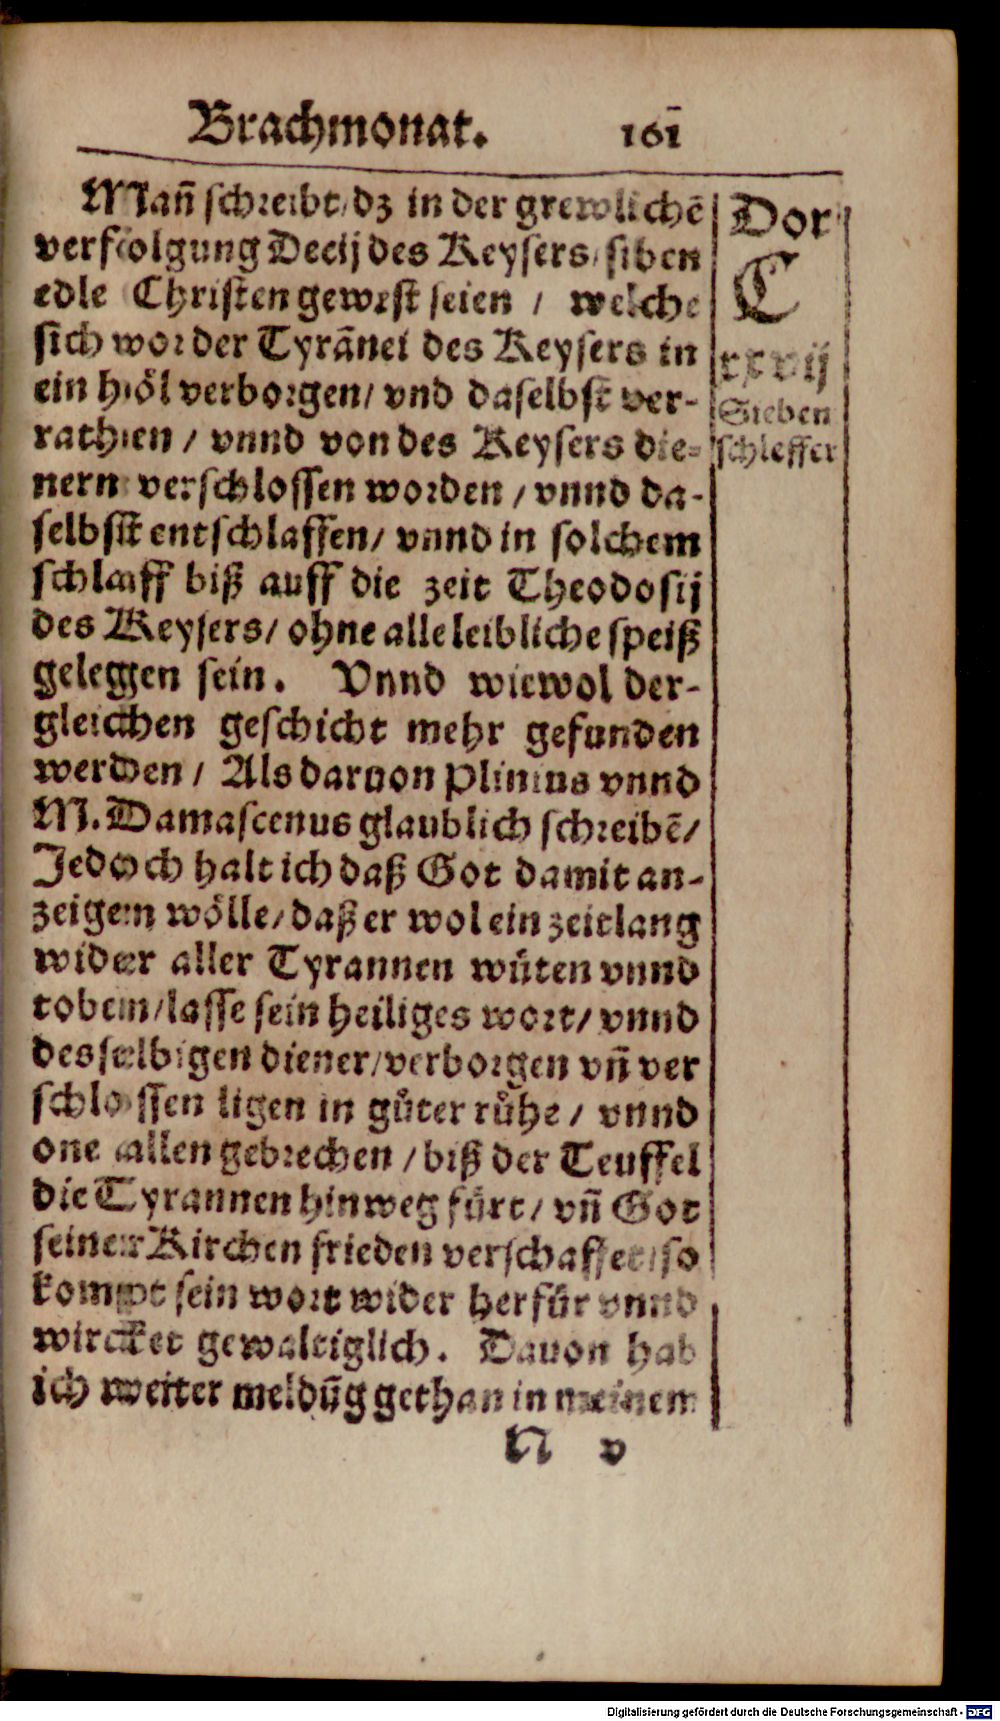 Brachmonat. 161
Mañ schreibt/ dz in der grewlichē
verfolgung Decij des Keysers/ siben
edle Christen gewest seien / welche
sich vor der Tyrānei des Keysers in
ein höl verborgen/ vnd daselbst ver-
rathen / vnnd von des Keysers die-
nern verschlossen worden / vnnd da-
selbst entschlaffen/ vnnd in solchem
schlaff biß auff die zeit Theodosij
des Keysers/ ohne alle leibliche speiß
gelegen sein. Vnnd wiewol der-
gleichen geschicht mehr gefunden
werden / Als daruon Plinius vnnd
M. Damascenus glaublich schreibē/
Jedoch halt ich daß Got damit an-
zeigen wölle/ daß er wol ein zeitlang
wider aller Tyrannen wüten vnnd
toben/ lasse sein heiliges wort/ vnnd
desselbigen diener/ verborgen vñ ver
schlossen ligen in gůter růhe / vnnd
one allen gebrechen / biß der Teuffel
die Tyrannen hinweg fürt/ vñ Got
seiner Kirchen frieden verschaffet/ so
kompt sein wort wider herfür vnnd
wircket gewaltiglich. Dauon hab
ich weiter meldũg gethan in meinem
N v
Dor
C
xxvij
Sieben
schleffer
Digitalisierung gefördert durch die Deutsche Forschungsgemeinschaft - DFG